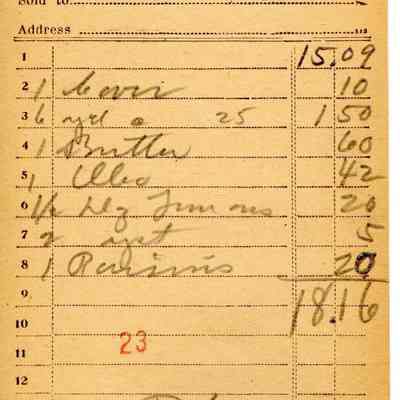 Sold to
Address
1 15.09
2 1 10
3 6 25 1 50
4 1 Butter 60
5 1 Oleo 42
6 1/2 Dz Lemons 20
7 2 yst 5
8 1 Raisins 20
9 18.16
10
11 23
12